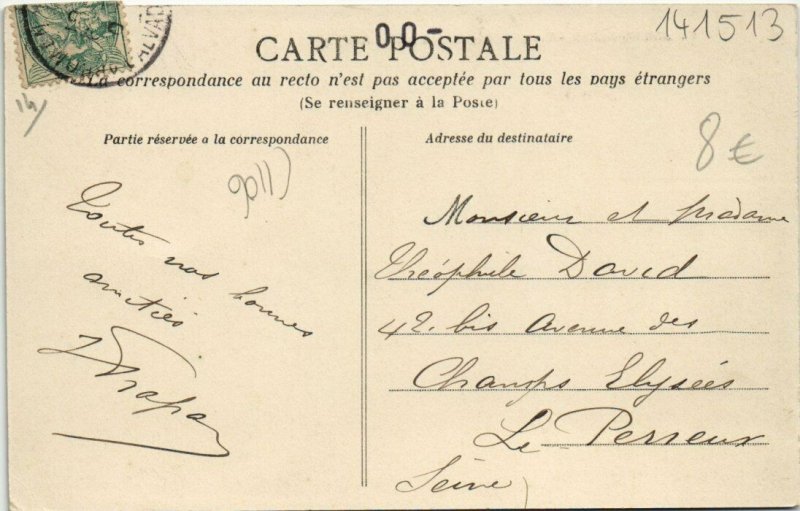 141513
00-
CARTE POSTALE
La correspondance au recto n'est pas acceptée par tous les pays étrangers
(Se renseigner à la Poste)
Partie réservée a la correspondance
Adresse du destinataire
14
8 €
Toutes nos bonnes
amitiés
Monsieur et Madame
Théophile David
42 bis Avenue des
Champs Elysées
Le Perreux
Seine